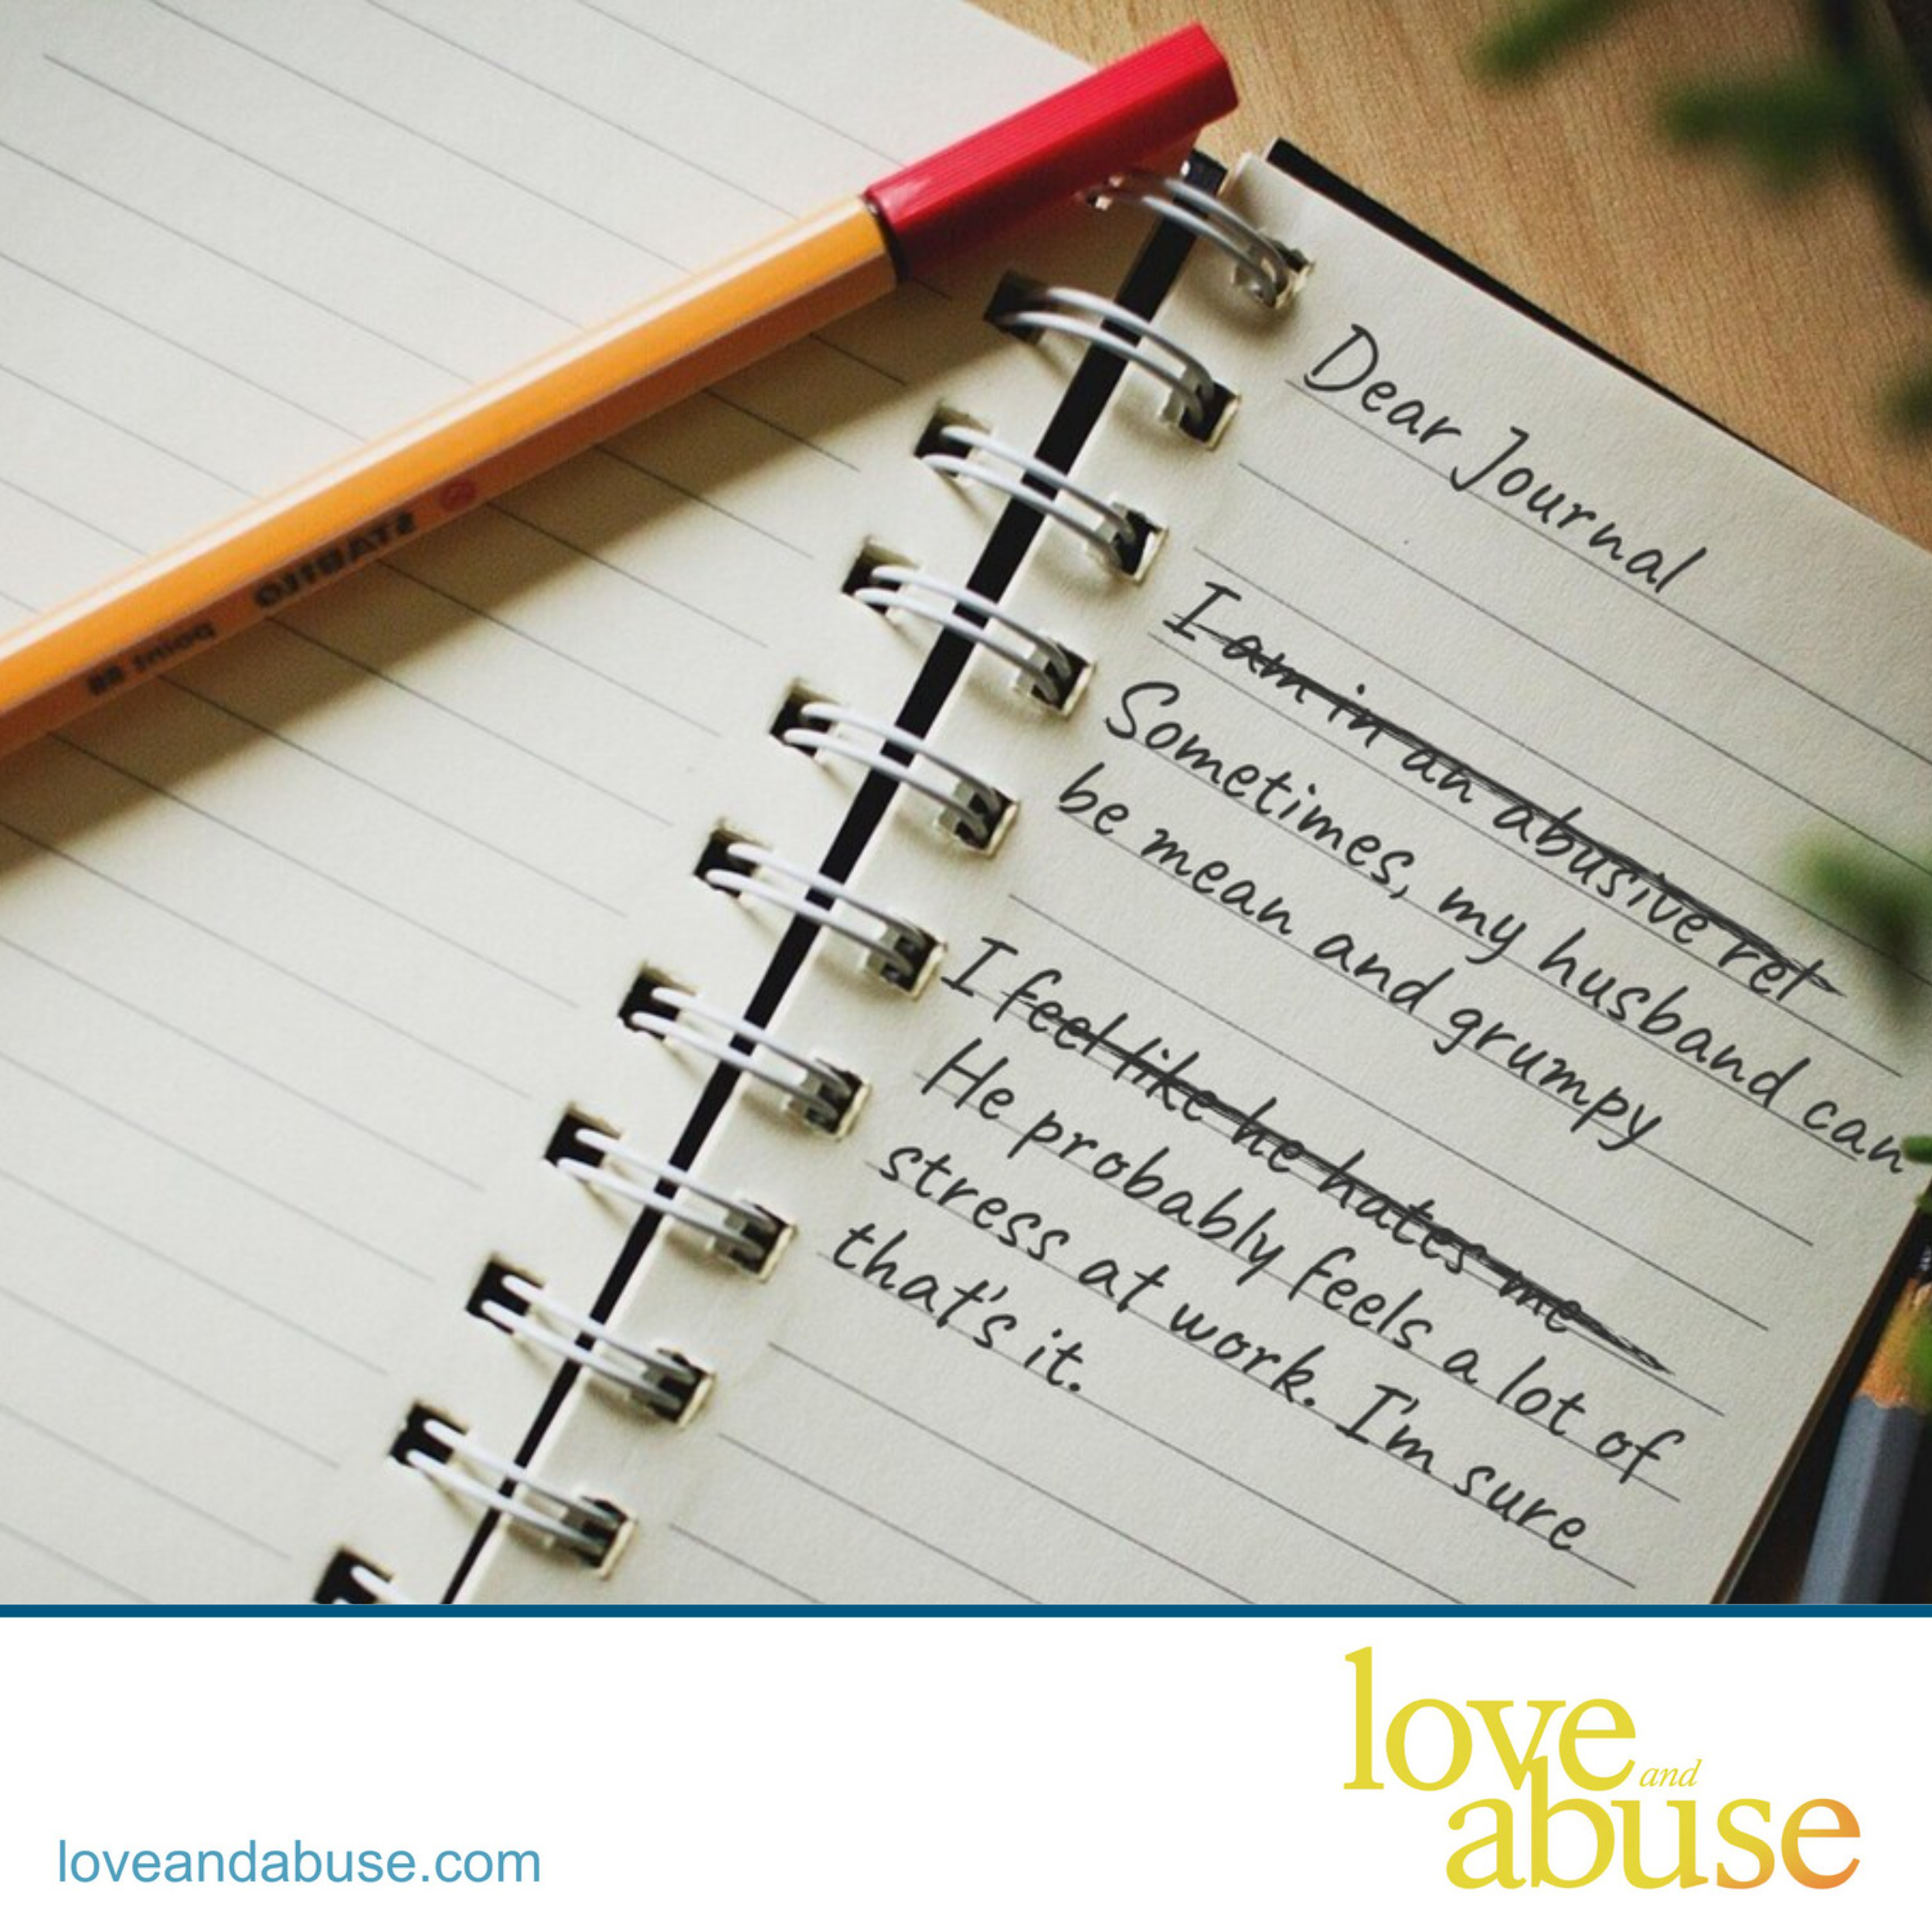 STABILO
point 88
Dear Journal
I am in an abusive rel
Sometimes, my husband can
be mean and grumpy
I feel like he hates me
He probably feels a lot of
stress at work. I'm sure
that's it.
love and
abuse
loveandabuse.com